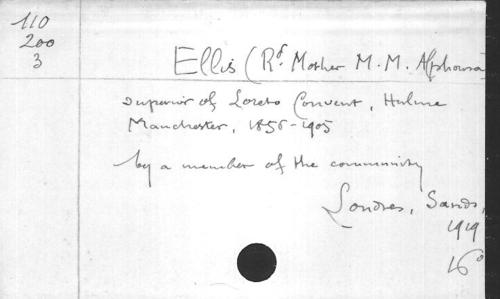 110
200
3
Ellis (Rd Mother M. M. Alphonsa
superior of Loreto Convent, Hulme
Manchester, 1856-1905
by a member of the community
Londres, Sands,
1919
16°